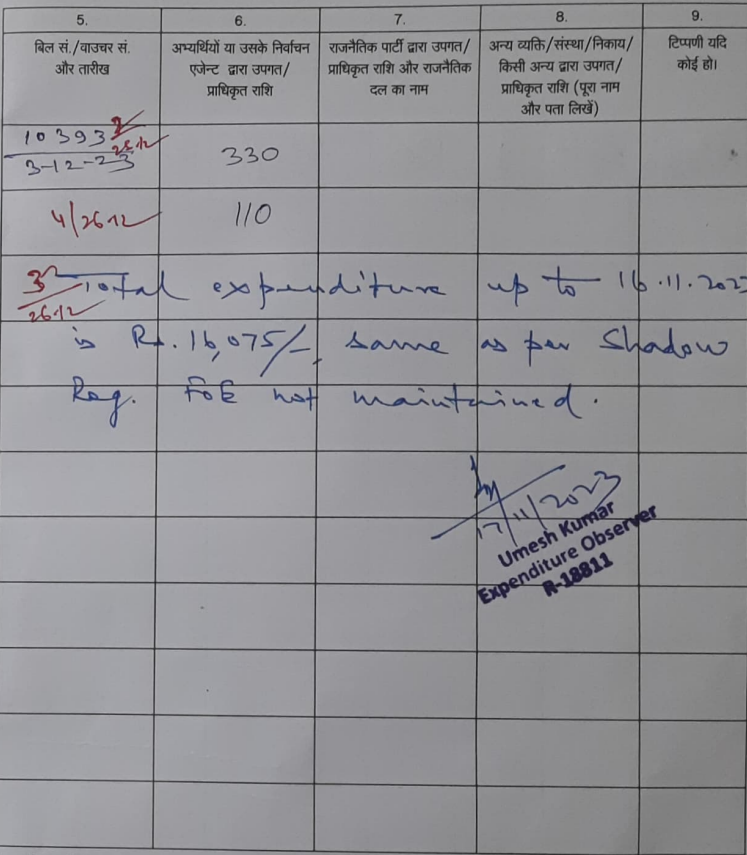 5. 6. 7. 8. 9.
बिल सं./वाउचर सं.
और तारीख
अभ्यर्थियों या उसके निर्वाचन
एजेन्ट द्वारा उपगत/
प्राधिकृत राशि
राजनैतिक पार्टी द्वारा उपगत/
प्राधिकृत राशि और राजनैतिक
दल का नाम
अन्य व्यक्ति/संस्था/निकाय/
किसी अन्य द्वारा उपगत/
प्राधिकृत राशि (पूरा नाम
और पता लिखें)
टिप्पणी यदि
कोई हो।
10393
3-12-23
26.12
330
4/26.12
110
3
26.12
Total expenditure up to 16.11.2023
is Rs. 16,075/-, same as per Shadow
Reg. FoE not maintained.
17/11/2023
Umesh Kumar
Expenditure Observer
R-18811